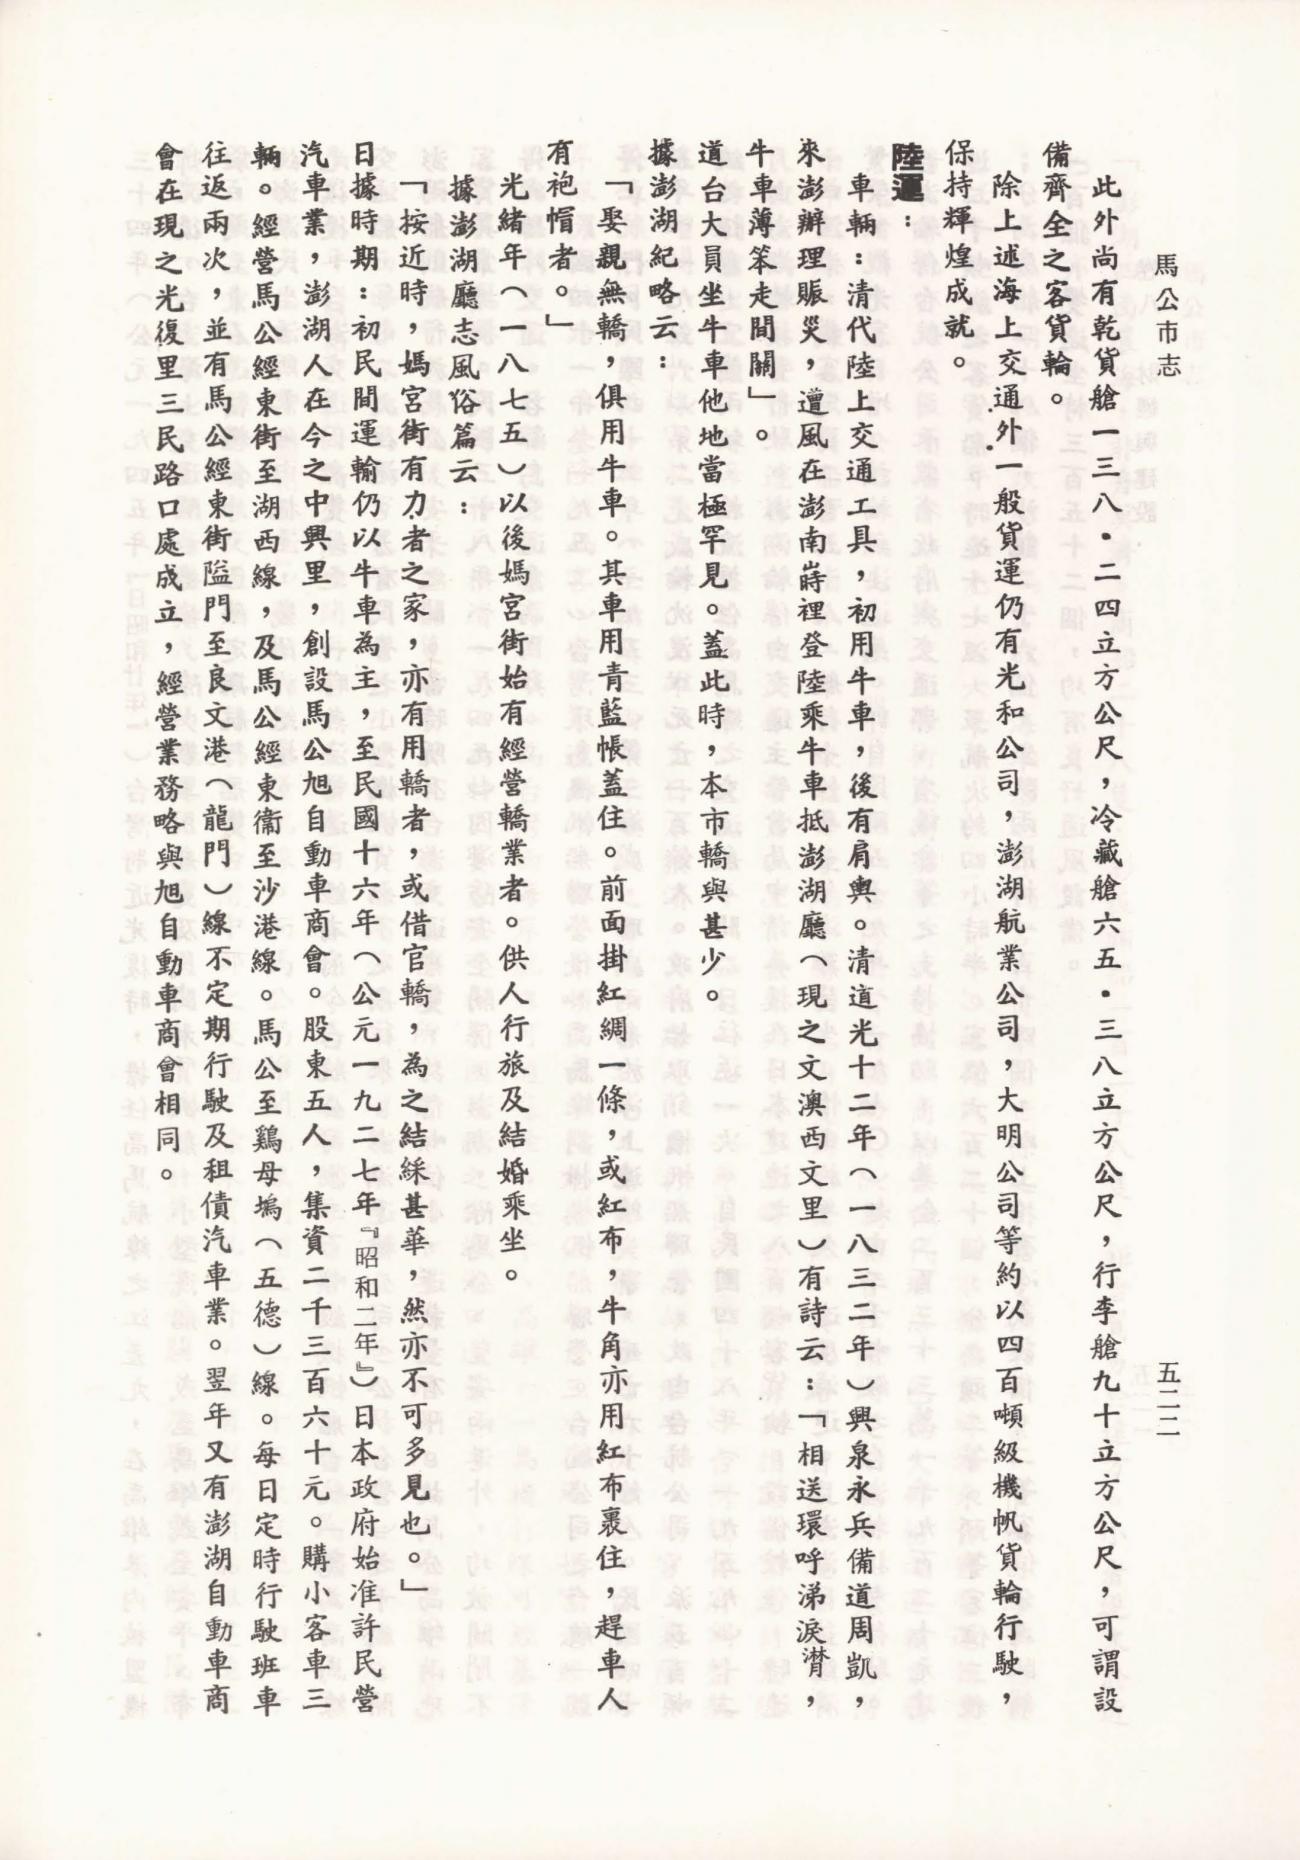 馬公市志
五二二
此外尚有乾貨艙一三八・二四立方公尺，冷藏艙六五・三八立方公尺，行李艙九十立方公尺，可謂設
備齊全之客貨輪。
除上述海上交通外一般貨運仍有光和公司，澎湖航業公司，大明公司等約以四百噸級機帆貨輪行駛，
保持輝煌成就。
陸運：
車輛：清代陸上交通工具，初用牛車，後有肩輿。清道光十二年（一八三二年）興泉永兵備道周凱，
來澎辦理賑災，遭風在澎南嵵裡登陸乘牛車抵澎湖廳（現之文澳西文里）有詩云：「相送環呼涕淚潸，
牛車薄笨走間關」。
道台大員坐牛車他地當極罕見。蓋此時，本市轎與甚少。
據澎湖紀略云：
「娶親無轎，俱用牛車。其車用青藍帳蓋住。前面掛紅綢一條，或紅布，牛角亦用紅布裹住，趕車人
有袍帽者。」
光緒年（一八七五）以後媽宮街始有經營轎業者。供人行旅及結婚乘坐。
據澎湖廳志風俗篇云：
「按近時，媽宮街有力者之家，亦有用轎者，或借官轎，為之結綵甚華，然亦不可多見也。」
日據時期：初民間運輸仍以牛車為主，至民國十六年（公元一九二七年『昭和二年』）日本政府始准許民營
汽車業，澎湖人在今之中興里，創設馬公旭自動車商會。股東五人，集資二千三百六十元。購小客車三
輛。經營馬公經東街至湖西線，及馬公經東衞至沙港線。馬公至鷄母塢（五德）線。每日定時行駛班車
往返兩次，並有馬公經東街隘門至良文港（龍門）線不定期行駛及租債汽車業。翌年又有澎湖自動車商
會在現之光復里三民路口處成立，經營業務略與旭自動車商會相同。